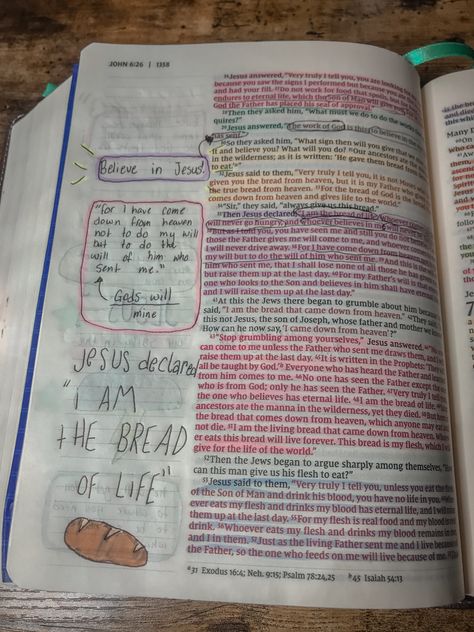 JOHN 6:26 | 1358
Believe in Jesus!
"for I have come
down from heaven
not to do my will
but to do the
will of him who
sent me."
Gods will
mine
JESUS declared
"I AM
tHE BREAD
OF LIFE"
26 Jesus answered, "Very truly I tell you, you are looking for
because you saw the signs I performed but because you
and had your fill. 27 Do not work for food that spoils, but for
endures to eternal life, which the Son of Man will give you.
God the Father has placed his seal of approval."
28 Then they asked him, "What must we do to do the works
quires?"
29 Jesus answered, "The work of God is this: to believe in the
has sent."
30 So they asked him, "What sign then will you give that we
it and believe you? What will you do? 31 Our ancestors ate the
in the wilderness; as it is written: 'He gave them bread from
to eat.'"
32 Jesus said to them, "Very truly I tell you, it is not Moses
given you the bread from heaven, but it is my Father who
the true bread from heaven. 33 For the bread of God is the
comes down from heaven and gives life to the world."
34 "Sir," they said, "always give us this bread."
35 Then Jesus declared, "I am the bread of life. Whoever
will never go hungry, and whoever believes in me will never
36 But as I told you, you have seen me and still you do not believe
those the Father gives me will come to me, and whoever
I will never drive away. 38 For I have come down from heaven
my will but to do the will of him who sent me. 39 And this is
him who sent me, that I shall lose none of all those he has
but raise them up at the last day. 40 For my Father's will is that
one who looks to the Son and believes in him shall have
and I will raise them up at the last day."
41 At this the Jews there began to grumble about him because
said, "I am the bread that came down from heaven." 42 They said,
this not Jesus, the son of Joseph, whose father and mother we
How can he now say, 'I came down from heaven'?"
43 "Stop grumbling among yourselves," Jesus answered. 44 "No
can come to me unless the Father who sent me draws them, and
raise them up at the last day. 45 It is written in the Prophets: 'They
all be taught by God.' Everyone who has heard the Father and
from him comes to me. 46 No one has seen the Father except the
who is from God; only he has seen the Father. 47 Very truly I tell
the one who believes has eternal life. 48 I am the bread of life.
ancestors ate the manna in the wilderness, yet they died. 50 But
the bread that comes down from heaven, which anyone may eat
not die. 51 I am the living bread that came down from heaven.
er eats this bread will live forever. This bread is my flesh, which I
give for the life of the world."
52 Then the Jews began to argue sharply among themselves, "How
can this man give us his flesh to eat?"
53 Jesus said to them, "Very truly I tell you, unless you eat the
of the Son of Man and drink his blood, you have no life in you.
ever eats my flesh and drinks my blood has eternal life, and I will
them up at the last day. 55 For my flesh is real food and my blood
drink. 56 Whoever eats my flesh and drinks my blood remains in
and I in them. 57 Just as the living Father sent me and I live because
the Father, so the one who feeds on me will live because of me.
a 31 Exodus 16:4; Neh. 9:15; Psalm 78:24,25 b 45 Isaiah 54:13
Many